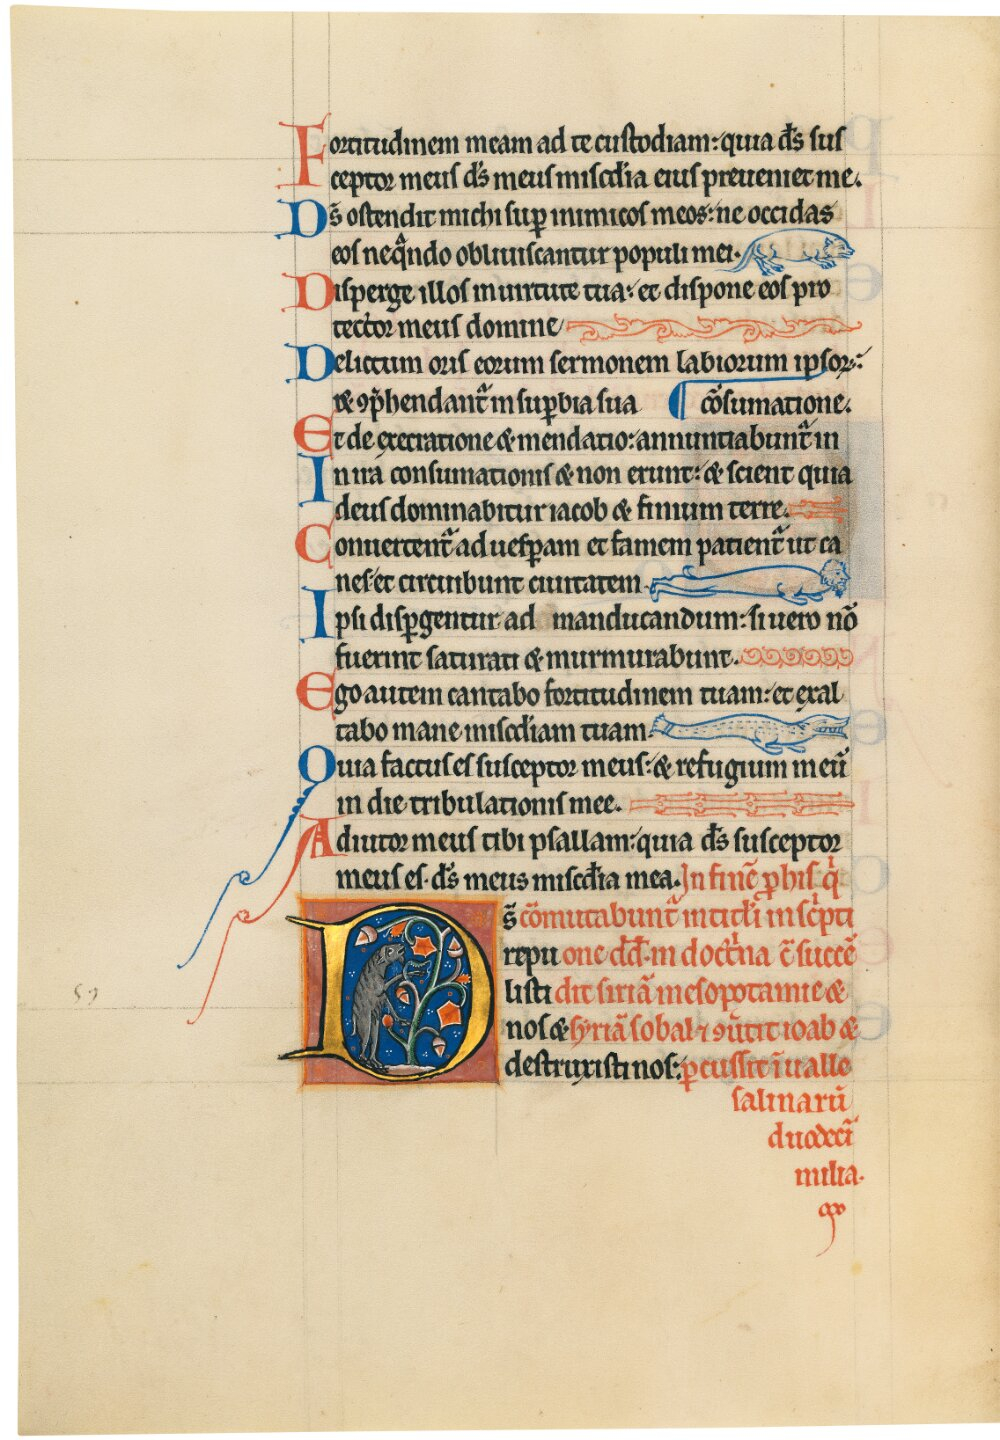 Fortitudinem meam ad te custodiam: quia d̄s sus
ceptor meus d̄s meus misc̄dia eius preueniet me.
D̄s ostendit michi sup̱ inimicos meos: ne occidas
eos neq̄ndo obliuiscantur populi mei.
Disperge illos in uirtute tua: et dispone eos pro
tector meus domine
Delictum oris eorum sermonem labiorum ipsoꝝ:
& ꝯp̄hendant᷑ in sup̱bia sua
cōsumatione.
Et de execratione & mendatio: annuntiabunt᷑ in
In ira consumationis & non erunt: & scient quia
deus dominabitur iacob & finium terre.
Conuertent᷑ ad uesp̱am et famem patient᷑ ut ca
nes: et circuibunt ciuitatem.
Ipsi disp̱gentur ad manducandum: si uero nō
fuerint saturati & murmurabunt.
Ego autem cantabo fortitudinem tuam: et exal
tabo mane misc̄diam tuam.
Quia factus es susceptor meus: & refugium meū
in die tribulationis mee.
Adiutor meus tibi psallam: quia d̄s susceptor
meus es. d̄s meus misc̄dia mea. In finē p̱ his q̇
D̄s cōmutabunt᷑ in tituli inscͥpti
repu one dd̄. in doctͥna c̄ succē
listi dit siriā mesopotamie &
nos & syriā sobal ⁊ ꝯūtit ioab &
destruxisti nos: p̱cussit ī ualle
salinarū
duodecī
milia.
59